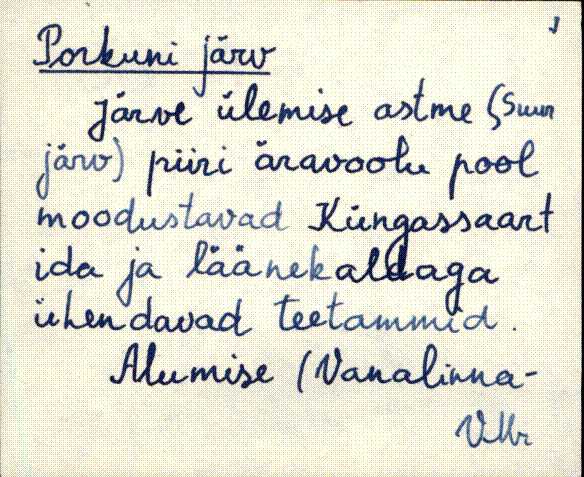 Porkuni järv
järve ülemise astme (Suur
järv) piiri äravoolu pool
moodustavad Küngassaart
ida ja läänekaldaga
ühendavad teetammid.
Alumise (Vanalinna-